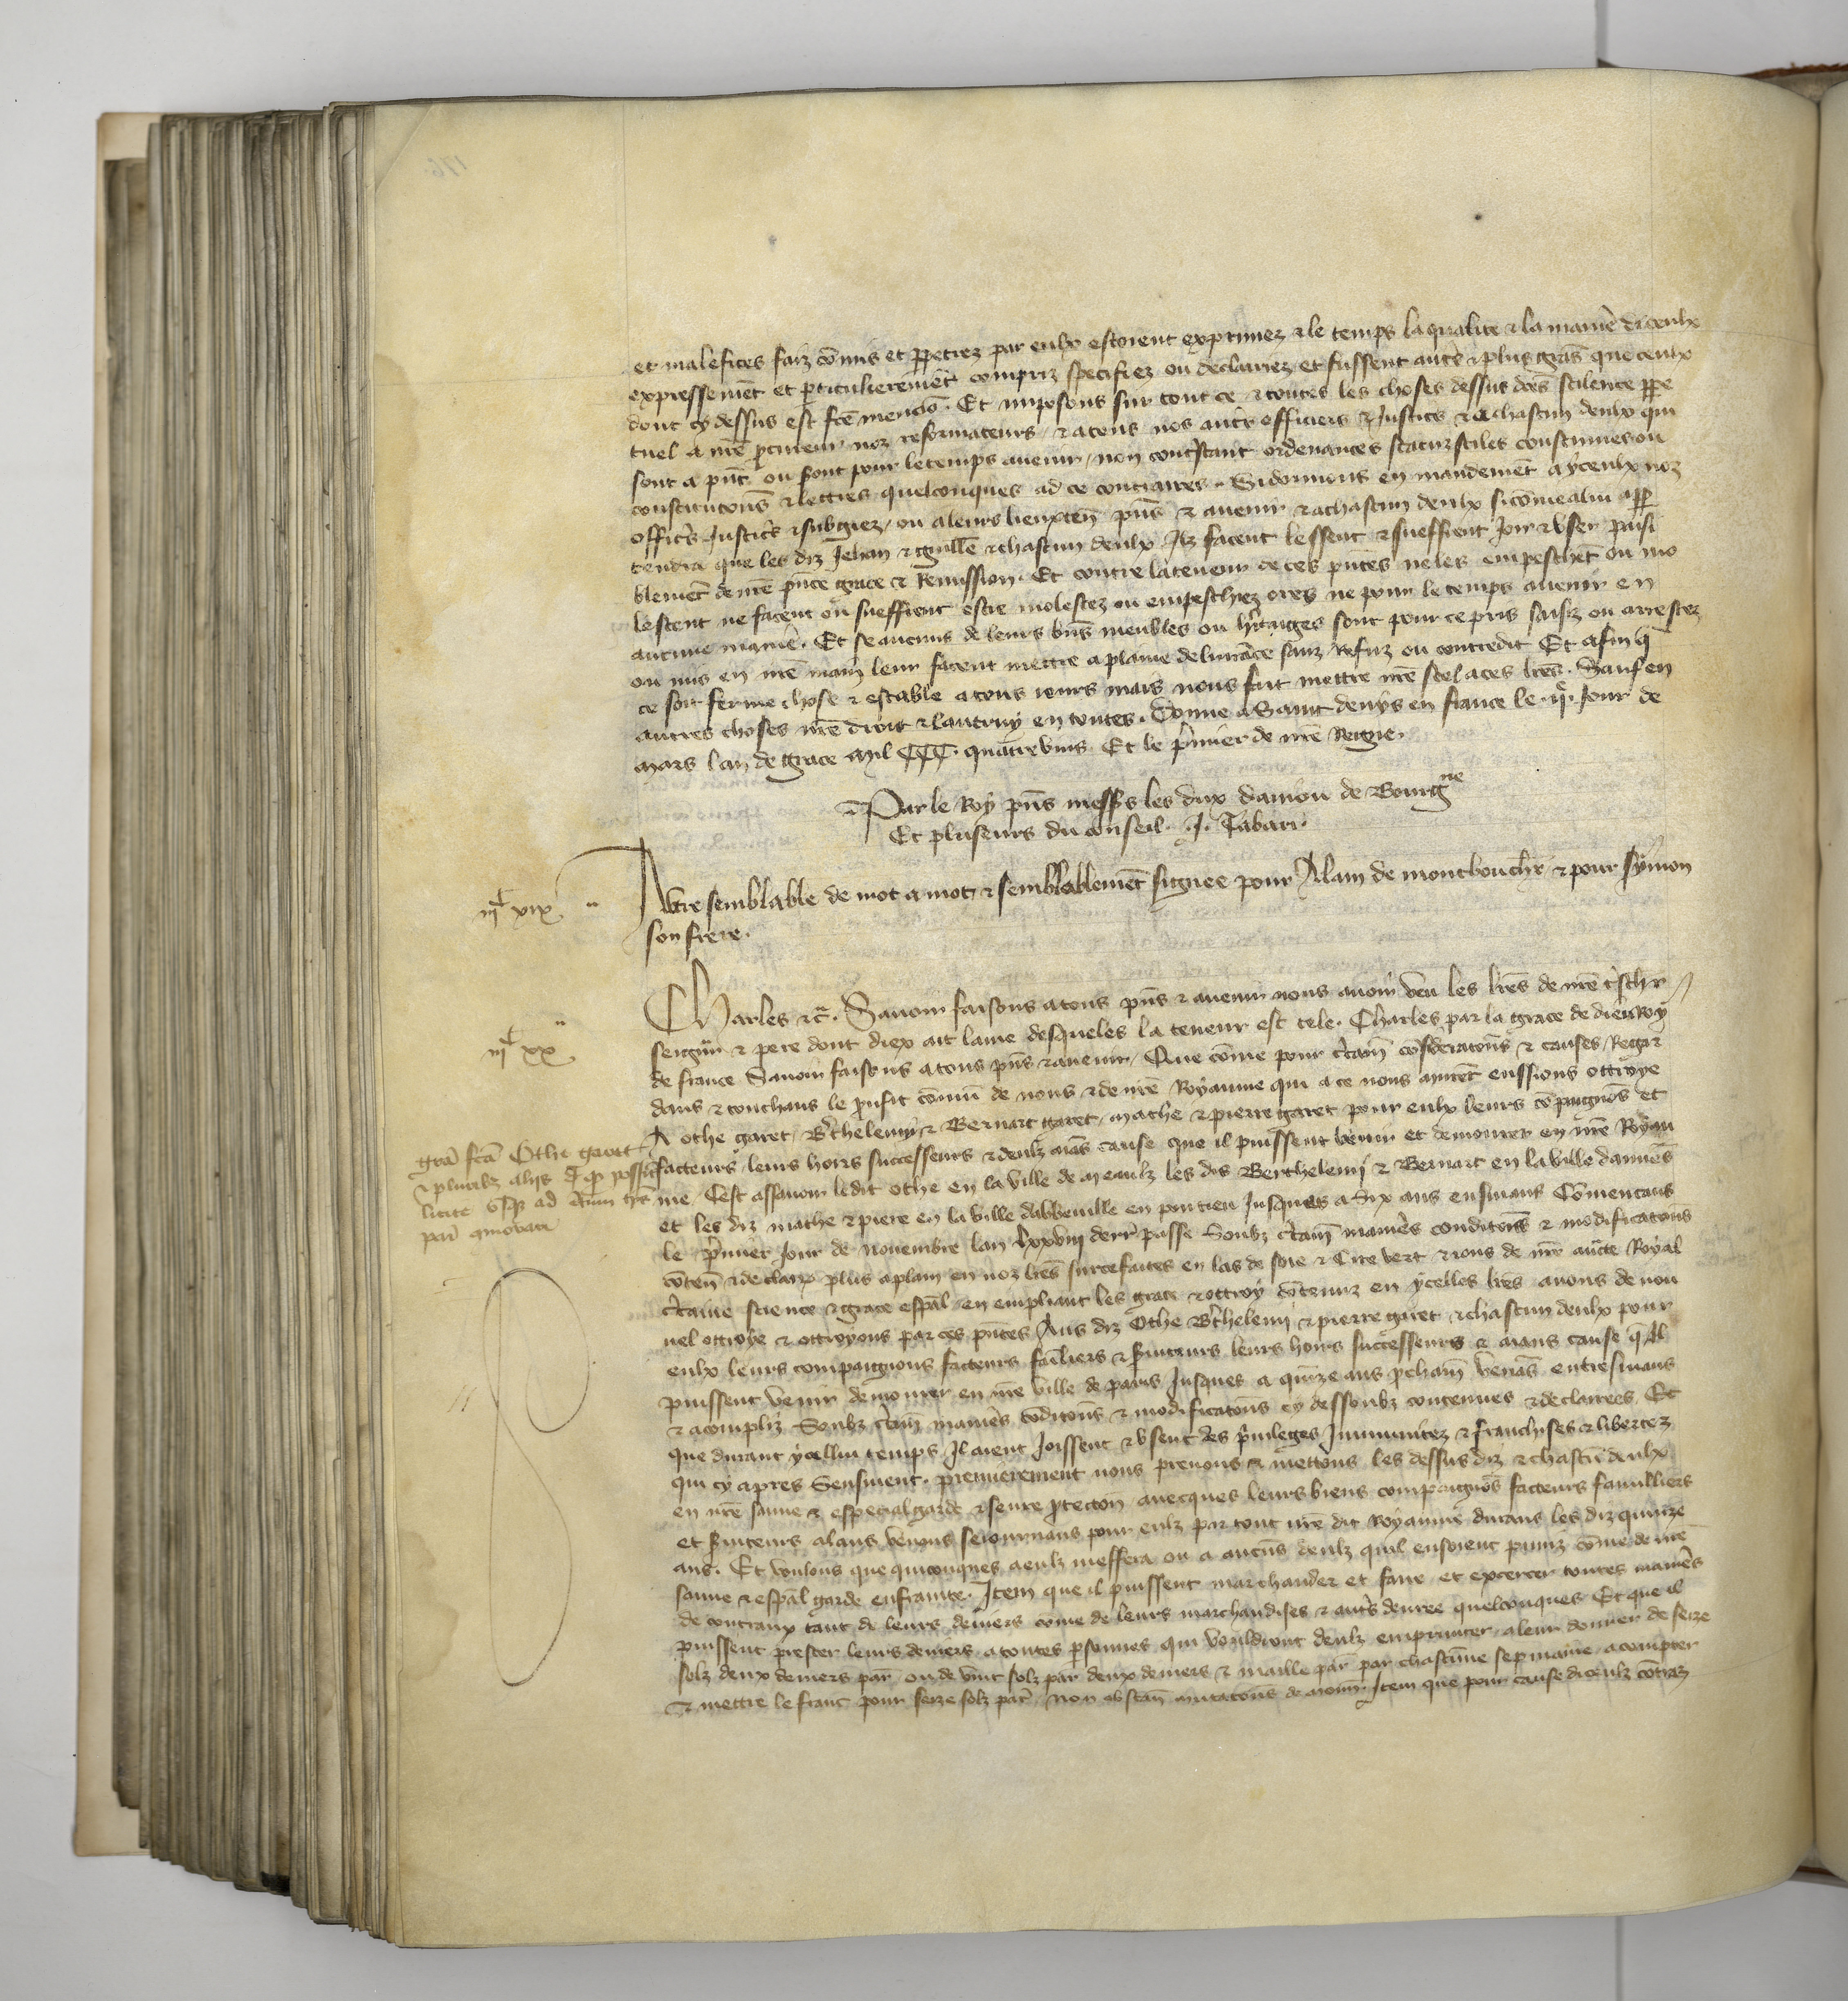 et malefices faiz com̄is et ꝑpetrez par eulx estoient exprimez & le temps la qualite & la manie᷑ diceulx
expressemēt et ꝑticulieremēt compriz specifiez ou declariez et fussent aut᷑s & plus grās que ceulx
dont cy dessus est fc̄e mencō. Et imposons sur tout ce & toutes les choses dessus dc̄es scilence ꝑpe
tuel a nr̄e ꝓcureur noz reformateurs & a touz nos autr̄ officiers & Justic̄s & a chascun deulx qui
sont a pn̄t ou seront pour le temps auenir, non contrstant ordenances statuz stiles coustumes ou
constitucōns & lettres quelconques ad ce contraires. Si donnons en mandemēt a yceulx noz
offic̄rs Justic̄rs & subgiez, ou a leurs lieuxten̄ pn̄s & auenir & a chascun deulx si cōme a lui apꝑ
tendra que les diz Jehan & guille᷑ & chascun deulx Ilz facent lessent & sueffrent Joir & vser paisi
blemēt de nr̄e pn̄te grace & Remission. Et contre la teneur de ces pn̄tes ne les empeschēt ou mo
lestent ne facent ou sueffrent estre molestez ou empeschiez ores ne pour le temps auenir en
aucune manie᷑. Et se aucuns de leurs bn̄s meubles ou hr̄itaiges sont pour ce pris saisiz ou arrestez
ou mis en nr̄e main leur facent mettre a plaine deliurāce sanz Refuz ou contredit Et afin q̄
ce soit ferme chose & estable a tous iours mais nous fait mettre nr̄e scel a ces lr̄es. Sauf en
autres choses nr̄e droit & lautruy en toutes. Donne a Saint denys en france le .ije. Jour de
mars lan de grace Mil CCC. quatrevins Et le p̄mier de nr̄e Regne.
Par le Roy pn̄s mess̄rs les dux daniou de Bourgne
Et pluseurs du conseil. J. Tabari.
iijC xix
Autre semblable de mot a mot & semblablemēt signee pour Alain de montbouchr̄ & pour Symon
son frere.
iijC xx
Charles &c̄. Sauoir faisons a tous pn̄s & auenir nous auoir veu les lr̄es de nr̄e t᷑schr̄
seign̄r & pere dont diex ait lame desqueles la teneur est tele. Charles par la grace de dieu Roy
de france Sauoir faisons a tous pn̄s & auenir, Que cōme pour c᷑tain̄ consideracōns & causes Regar
dans & touchans le proufit cōmū de nous & de nr̄e Royaume qui a ce nous murēt eussions ottroye
A othe garet, B᷑thelemy & Bernart garet, mathe & pierre garet pour eulx leurs cōpaignōs et
facteurs, leurs hoirs successeurs & deulz aiās cause que il puissent venir et demourer en nr̄e Royau
me, Cest assauoir ledit othe en la ville de meaulz les dis Berthelemi & Bernart en la ville damiēs
et les diz mathe & piere en la ville dabbeuille en pontieu Jusques a Six ans ensiuans Cōmencans
le p̄mier Jour de nouembre lan lxxviij derr̄ passe Soubz c᷑tain̄ manie᷑s condicōns & modificatōns
cōten̄ & declarez plus aplain en noz lr̄es sur ce faites en las de soie & Cire vert & nous de nr̄e auc̄te Royal
c᷑taine science & grace esp̄al en empliant les grace & ottroy cōtenuz en ycelles lr̄es auons de nou
uel ottroye & ottroyons par ces pn̄tes Aus diz Othe B᷑thelemi & pierre garet & chascun deulx pour
eulx leurs compaignons facteurs fam̄liers & s᷑uiteurs leurs hoirs successeurs & aians cause q̄ Il
puissent venir demourer en nr̄e ville de paris Jusques a quīze ans ꝓcham̄ venās entresiuans
& acompliz Soubz c᷑tain̄ manie᷑s cōdicōns & modificatōns cy dessoubz contenues & declarees Et
que durant ycellui temps Il aient Joissent & vsent des p᷑uileges Immunitez & franchises & libertez
qui cy apres Sensuient. premierement nous prenons & mettons les dessus diz & chascū deulx
en nr̄e sauue & especial garde & seure ꝓtectōn auecques leurs biens compaignōs facteurs familliers
et s᷑uiteurs alans venons seiournans pour eulz par tout nr̄e dit Royaume durans les diz quinze
ans. Et voulons que quiconques a eulz meffera ou a aucūs deulz quil en soient puniz cōme de nr̄e
sauue & esp̄al garde enfrainte. Item que il puissent marchander et faire et exercer toutes manie᷑s
de contraux tant de leurs deniers cōme de leurs marchandises & aut᷑s denree quelconques Et que il
puissent prester leurs deniers a toutes ꝑsonnes qui vouldront deulz emprunter a leur donner de seize
solz deux deniers par̄ ou de vint solz par̄ deux deniers & maille par̄ par chascūne sepmaine a compter
& mettre le franc pour seize solz par̄, non obstan̄ mutatōns de monn̄. Item que pour cause diceulz cōtraz
grā fc̄ā Othe garet
& pluribz alijs q̄ possit
licite vsqꝫ ad ...